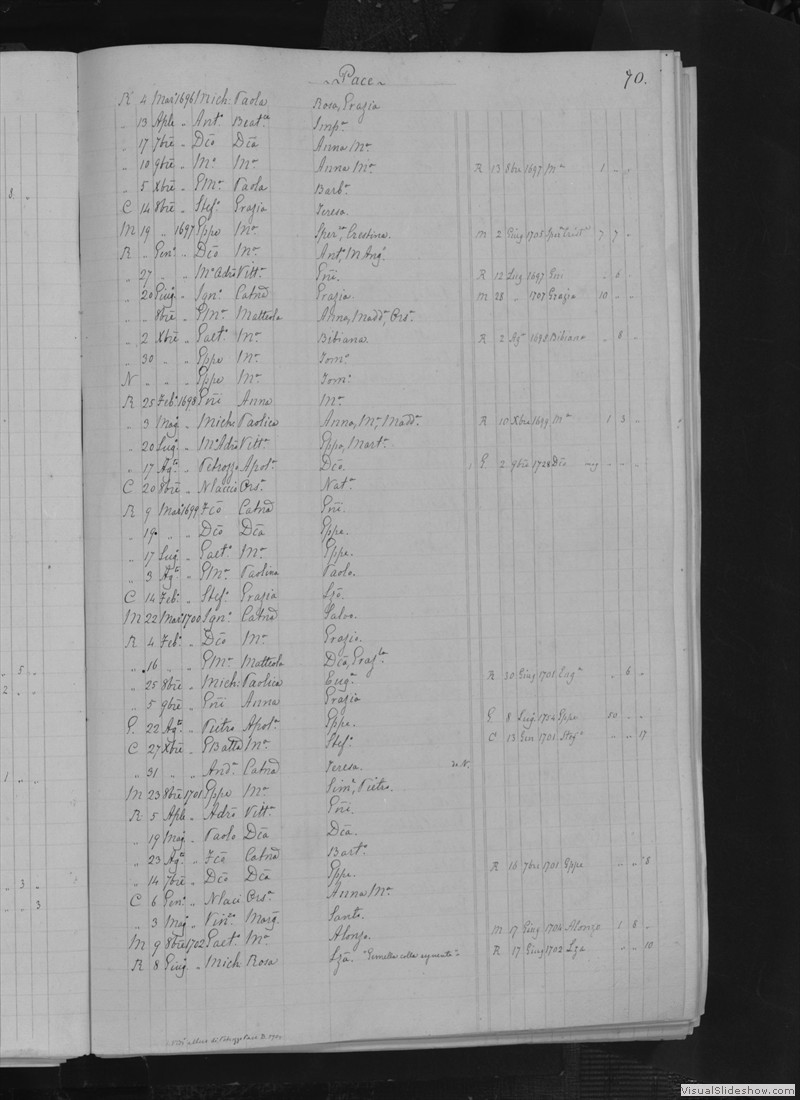 Pace
70.
R 4 Mar. 1696 Mich. Paola Rosa, Grazia
" 13 Aple " Ant. Beat.ce Imp.a
" 17 7bre " Dco Dca Anna Ma
" 10 9bre " Mo Ma Anna Ma R 13 8bre 1697 Ma 1 " "
" 5 Xbre " GMa Paola Barb.a
C 14 8bre " Stef.o Grazia Teresa
M 19 " 1697 Gppe Ma Sper.a, Crestina. M 2 Giug 1705 7 7 "
R " Gen.o " Dco Ma Ant, M Ang.
" 27 " " Mo Adro Vitt.a Gni. R 12 Lug 1697 Gni " 6 "
" 20 Giug " Ign.o Catna Grazia M 28 " 1707 Grazia 10 " "
" " 8bre " GMa Matteola Anna, Madd.a, Ors.a
" 2 Xbre " Gaet.o Ma Bibiana R 2 Ag. 1698 Bibiana " 8 "
" 30 " " Gppe Ma Tom.o
N " " " Gppe Ma Tom.o
R 25 Feb. 1698 Gni Anna Ma
" 3 Mag " Mich. Paolica Anna, Ma, Madd.a R 10 Xbre 1699 Ma 1 3 "
" 20 Lug. " Mo Adro Vitt.a Gppe, Mart.
" 17 Ag. " Petrozzo Apol.a Dco. G. 2 9bre 1728 Dco
C 20 8bre " Nlacci Ors.a Nat.
R 9 Mar. 1699 Fco Catna Gni.
" 19 " " Dco Dca Gppe.
" 17 Lug " Gaet.o Ma Gppa.
" 3 Ag. " GMa Paolina Paolo.
C 14 Feb. " Stef.o Grazia Lza.
M 22 Mar. 1700 Ign.o Catna Salvo.
R 4 Feb. " Dco Ma Grazio.
" 16 " " GMa Matteola Dca, Graz.la
" 25 8bre " Mich. Paolica Eug.a R 30 Giug 1701 Eug.a " 6 "
" 5 9bre " Gni Anna Grazia
G. 22 Ag. " Pietro Apol.a Gppe. G. 8 Lug. Gppe
C 27 Xbre " GBatta Ma Stef.o C 13 Gen 1701 Stef.o " " 17
" 31 " " And.a Catna Teresa.
M 23 8bre 1701 Gppe Ma Sim.e, Pietro.
R 5 Aple " Adro Vitt.a Gni.
" 19 Mag. " Paolo Dca Dca.
" 23 Ag. " Fco Catna Bart.o
" 14 7bre " Dco Dca Gppe. R 16 7bre 1701 Gppe " " 8
C 6 Gen.o " Nlaci Ors.a Anna Ma
" 3 Mag " Vin.o Marg. Santo.
M 9 8bre 1702 Gaet.o Ma Alonzo. M 17 Giug 1704 Alonzo 1 8 "
R 8 Giug. " Mich Rosa Lza. "Gemella colla seguente" R 17 Giug 1702 Lza " " 10
8.
5
2
1
3
3
VisualSlideshow.com